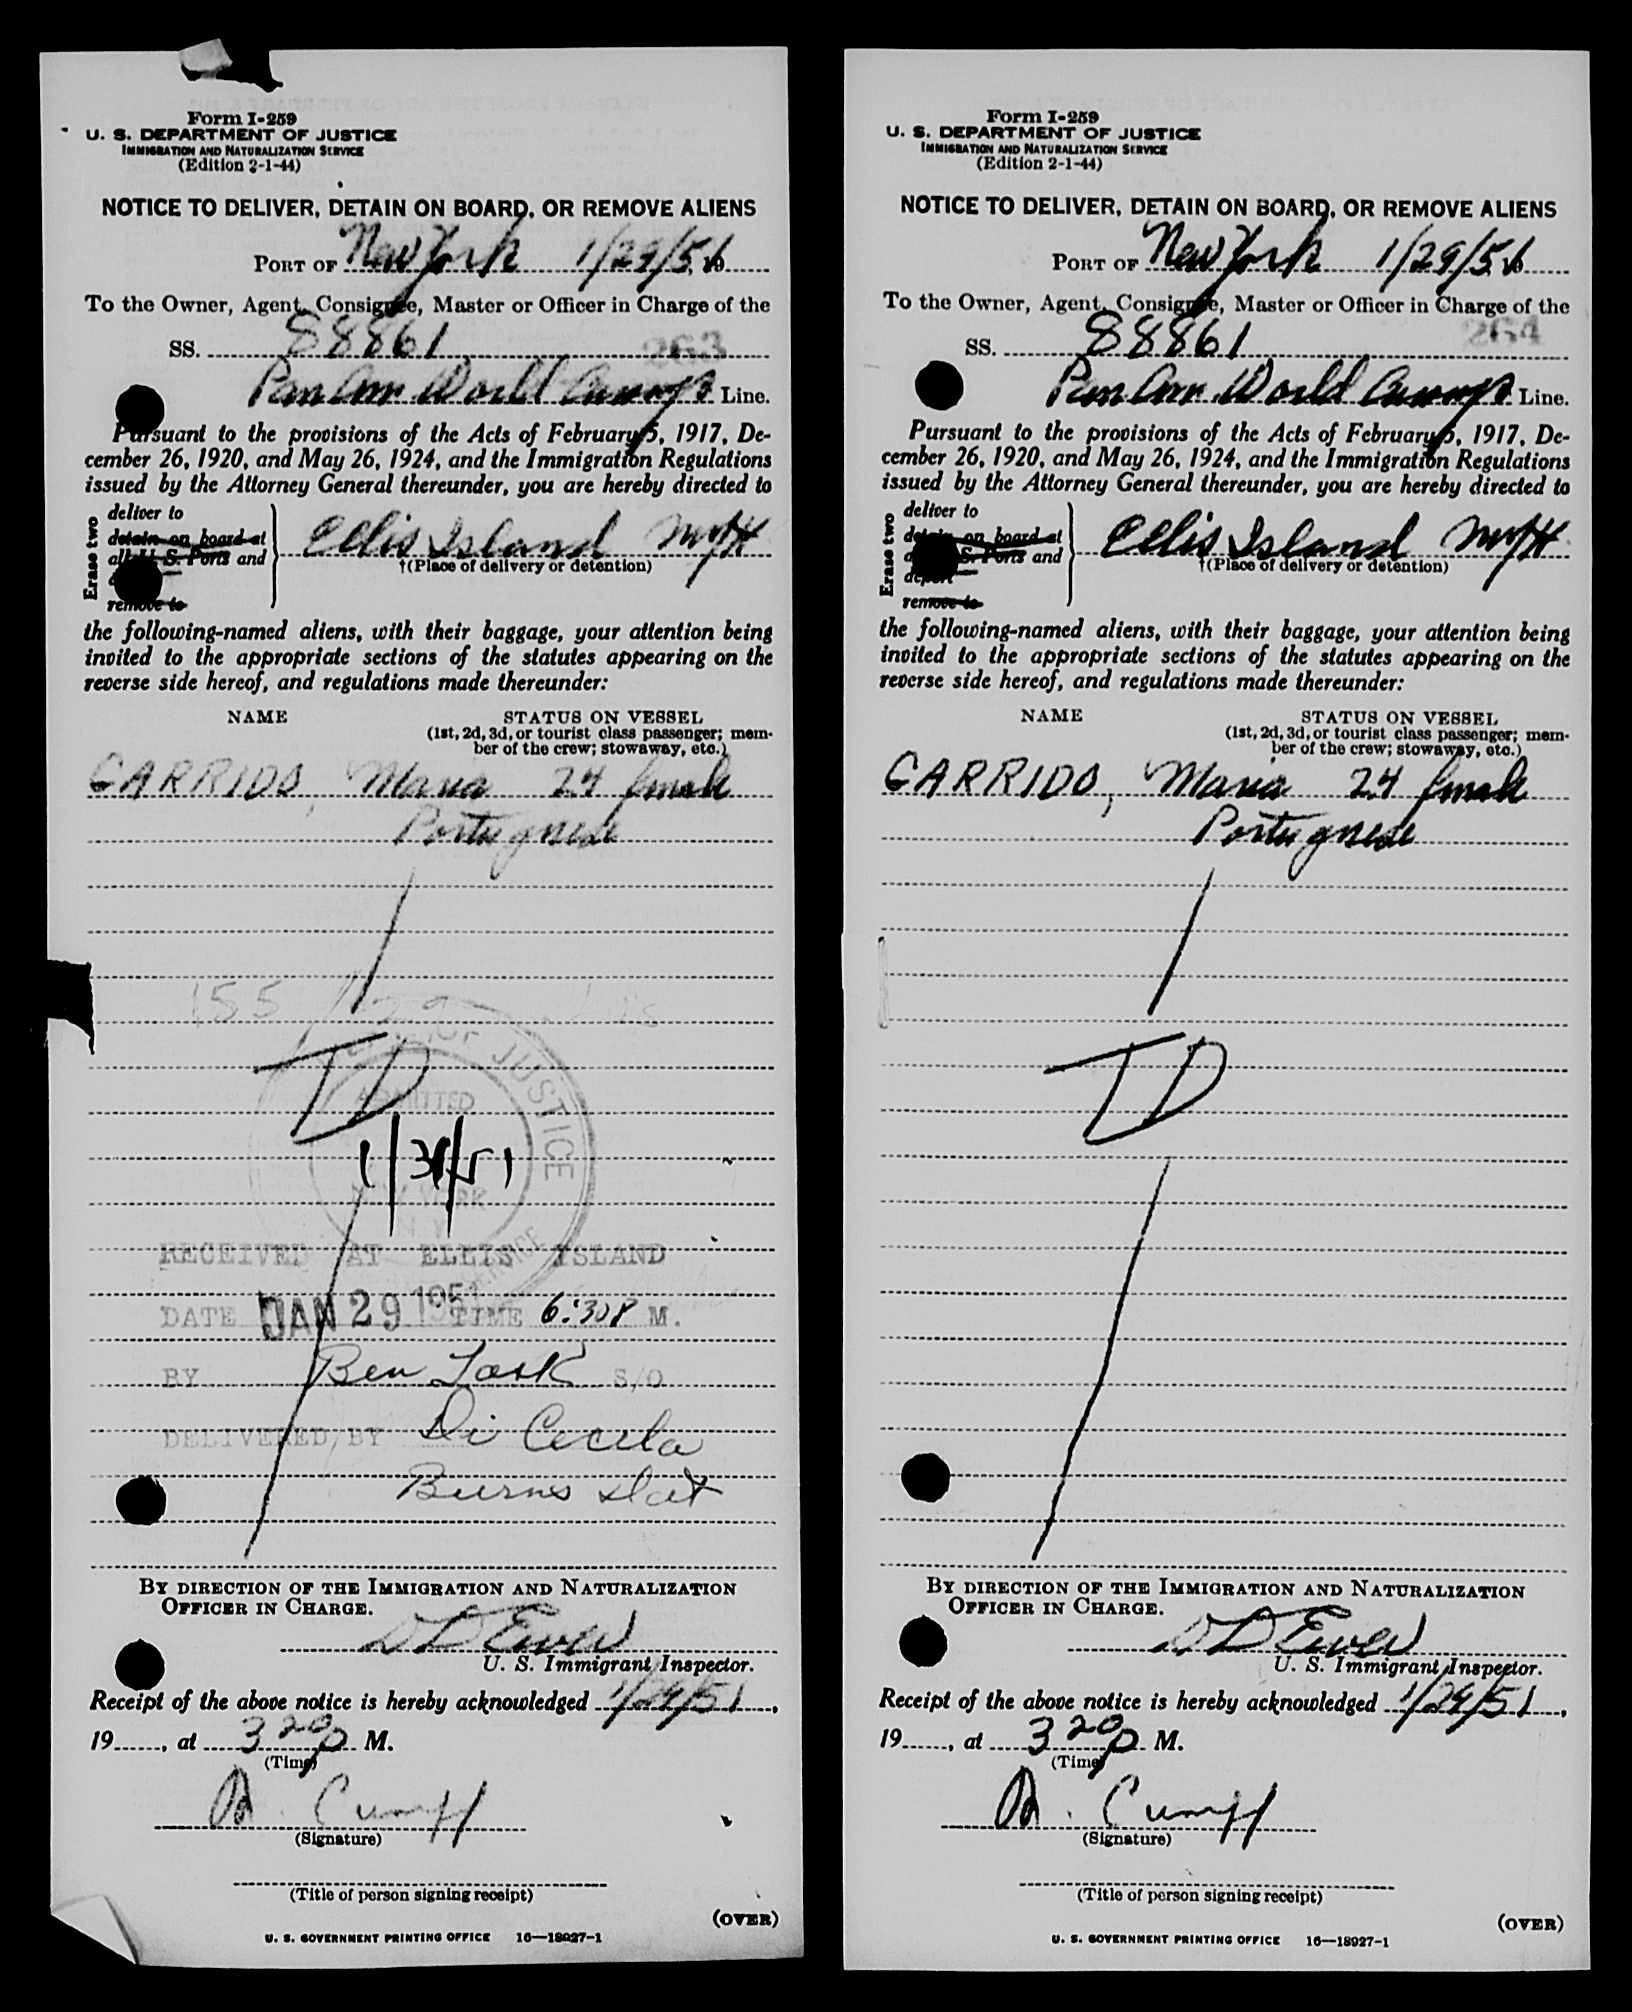 Form I-259
U. S. DEPARTMENT OF JUSTICE
IMMIGRATION AND NATURALIZATION SERVICE
(Edition 2-1-44)
NOTICE TO DELIVER, DETAIN ON BOARD, OR REMOVE ALIENS
PORT OF New York 1/29/51
To the Owner, Agent, Consignee, Master or Officer in Charge of the
SS. 88861 263
Pan Am World Line.
Pursuant to the provisions of the Acts of February 5, 1917, De-
cember 26, 1920, and May 26, 1924, and the Immigration Regulations
issued by the Attorney General thereunder, you are hereby directed to
Erase two
deliver to
detain on board at
all U. S. Ports and
remove to
Ellis Island
†(Place of delivery or detention)
the following-named aliens, with their baggage, your attention being
invited to the appropriate sections of the statutes appearing on the
reverse side hereof, and regulations made thereunder:
NAME STATUS ON VESSEL
(1st, 2d, 3d, or tourist class passenger; mem-
ber of the crew; stowaway, etc.)
GARRIDO, Maria 24 female
Portuguese
TD
JUSTICE
ADMITTED
NEW YORK
RECEIVED AT ELLIS ISLAND
DATE JAN 29 1951 TIME 6:30 P M.
BY Ben S/O
DELIVERED BY Di
Burns
BY DIRECTION OF THE IMMIGRATION AND NATURALIZATION
OFFICER IN CHARGE.
U. S. Immigrant Inspector.
Receipt of the above notice is hereby acknowledged 1/29/51,
19......, at 3 20 p M.
(Time)
(Signature)
(Title of person signing receipt)
(OVER)
U. S. GOVERNMENT PRINTING OFFICE 16—18927-1
Form I-259
U. S. DEPARTMENT OF JUSTICE
IMMIGRATION AND NATURALIZATION SERVICE
(Edition 2-1-44)
NOTICE TO DELIVER, DETAIN ON BOARD, OR REMOVE ALIENS
PORT OF New York 1/29/51
To the Owner, Agent, Consignee, Master or Officer in Charge of the
SS. 88861 264
Pan Am World Line.
Pursuant to the provisions of the Acts of February 5, 1917, De-
cember 26, 1920, and May 26, 1924, and the Immigration Regulations
issued by the Attorney General thereunder, you are hereby directed to
Erase two
deliver to
detain on board at
S. Ports and
deport
remove to
Ellis Island
†(Place of delivery or detention)
the following-named aliens, with their baggage, your attention being
invited to the appropriate sections of the statutes appearing on the
reverse side hereof, and regulations made thereunder:
NAME STATUS ON VESSEL
(1st, 2d, 3d, or tourist class passenger; mem-
ber of the crew; stowaway, etc.)
GARRIDO, Maria 24 female
Portuguese
TD
BY DIRECTION OF THE IMMIGRATION AND NATURALIZATION
OFFICER IN CHARGE.
U. S. Immigrant Inspector.
Receipt of the above notice is hereby acknowledged 1/29/51,
19......, at 3 20 p M.
(Time)
(Signature)
(Title of person signing receipt)
(OVER)
U. S. GOVERNMENT PRINTING OFFICE 16—18927-1